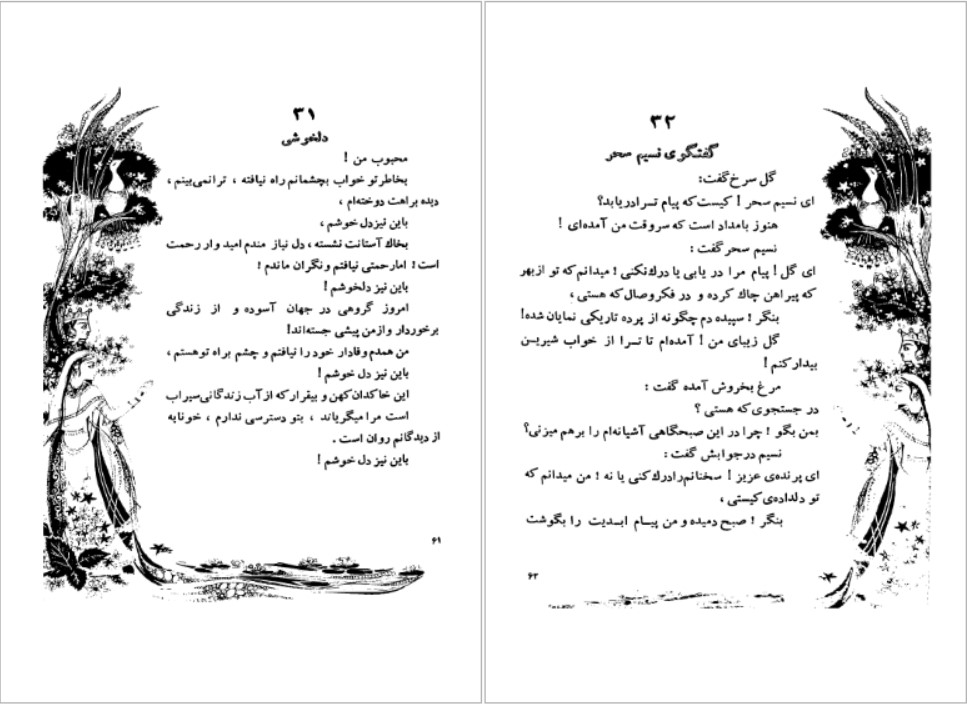 ۳۱
دلخوشی
محبوب من !
بخاطر تو خواب بچشمانم راه نیافته ، ترا نمی‌بینم ،
دیده براهت دوخته‌ام ،
باین نیز دل خوشم ،
بخاك آستانت نشسته ، دل نیاز مندم امیدوار رحمت
است ! اما رحمتی نیافتم و نگران ماندم !
باین نیز دلخوشم !
امروز گروهی در جهان آسوده و از زندگی
برخوردار و از من پیشی جسته‌اند!
من همدم وفادار خود را نیافتم و چشم براه تو هستم ،
باین نیز دل خوشم !
این خاکدان کهن و بیقرار که از آب زندگانی سیراب
است مرا میگریاند ، بتو دسترسی ندارم ، خونابه
از دیدگانم روان است .
باین نیز دل خوشم !
۶۱
۳۲
گفتگوی نسیم سحر
گل سرخ گفت:
ای نسیم سحر ! کیست که پیام ترا دریابد؟
هنوز بامداد است که سروقت من آمده‌ای !
نسیم سحر گفت :
ای گل ! پیام مرا در یابی یا درك نکنی ! میدانم که تو از بهر
که پیراهن چاك کرده و در فکر وصال که هستی ،
بنگر ! سپیده دم چگونه از پرده تاریکی نمایان شده!
گل زیبای من ! آمده‌ام تا ترا از خواب شیرین
بیدار کنم !
مرغ بخروش آمده گفت :
در جستجوی که هستی ؟
بمن بگو ! چرا در این صبحگاهی آشیانه‌ام را برهم میزنی؟
نسیم در جوابش گفت :
ای پرنده‌ی عزیز ! سخنانم را درك کنی یا نه ! من میدانم که
تو دلداده‌ی کیستی ،
بنگر ! صبح دمیده و من پیام ابدیت را بگوشت
۶۲